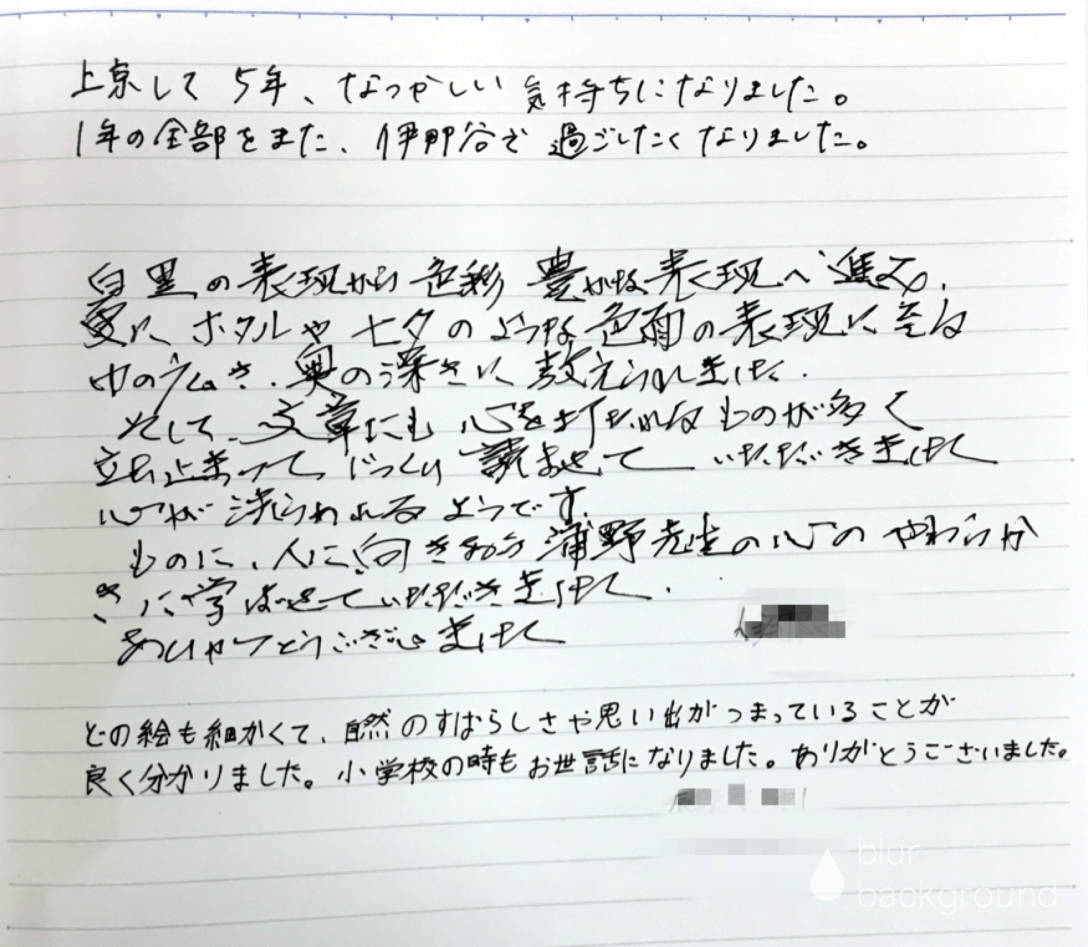 上京して5年、なつかしい気持ちになりました。
1年の全部をまた、伊那谷で過ごしたくなりました。
白黒の表現から色彩豊かな表現へ進み、
更にホタルや七夕のような色面の表現に至る
巾の広さ、奥の深さに教えられました。
そして、文章にも心を打たれるものが多く
立ち止まって、じっくり読ませていただきました
心が洗われるようです。
ものに、人に向き合う浦野先生の心のやわらか
さに学ばせていただきました。
ありがとうございました
どの絵も細かくて、自然のすばらしさや思い出がつまっていることが
良く分かりました。小学校の時もお世話になりました。ありがとうございました。
blur
background